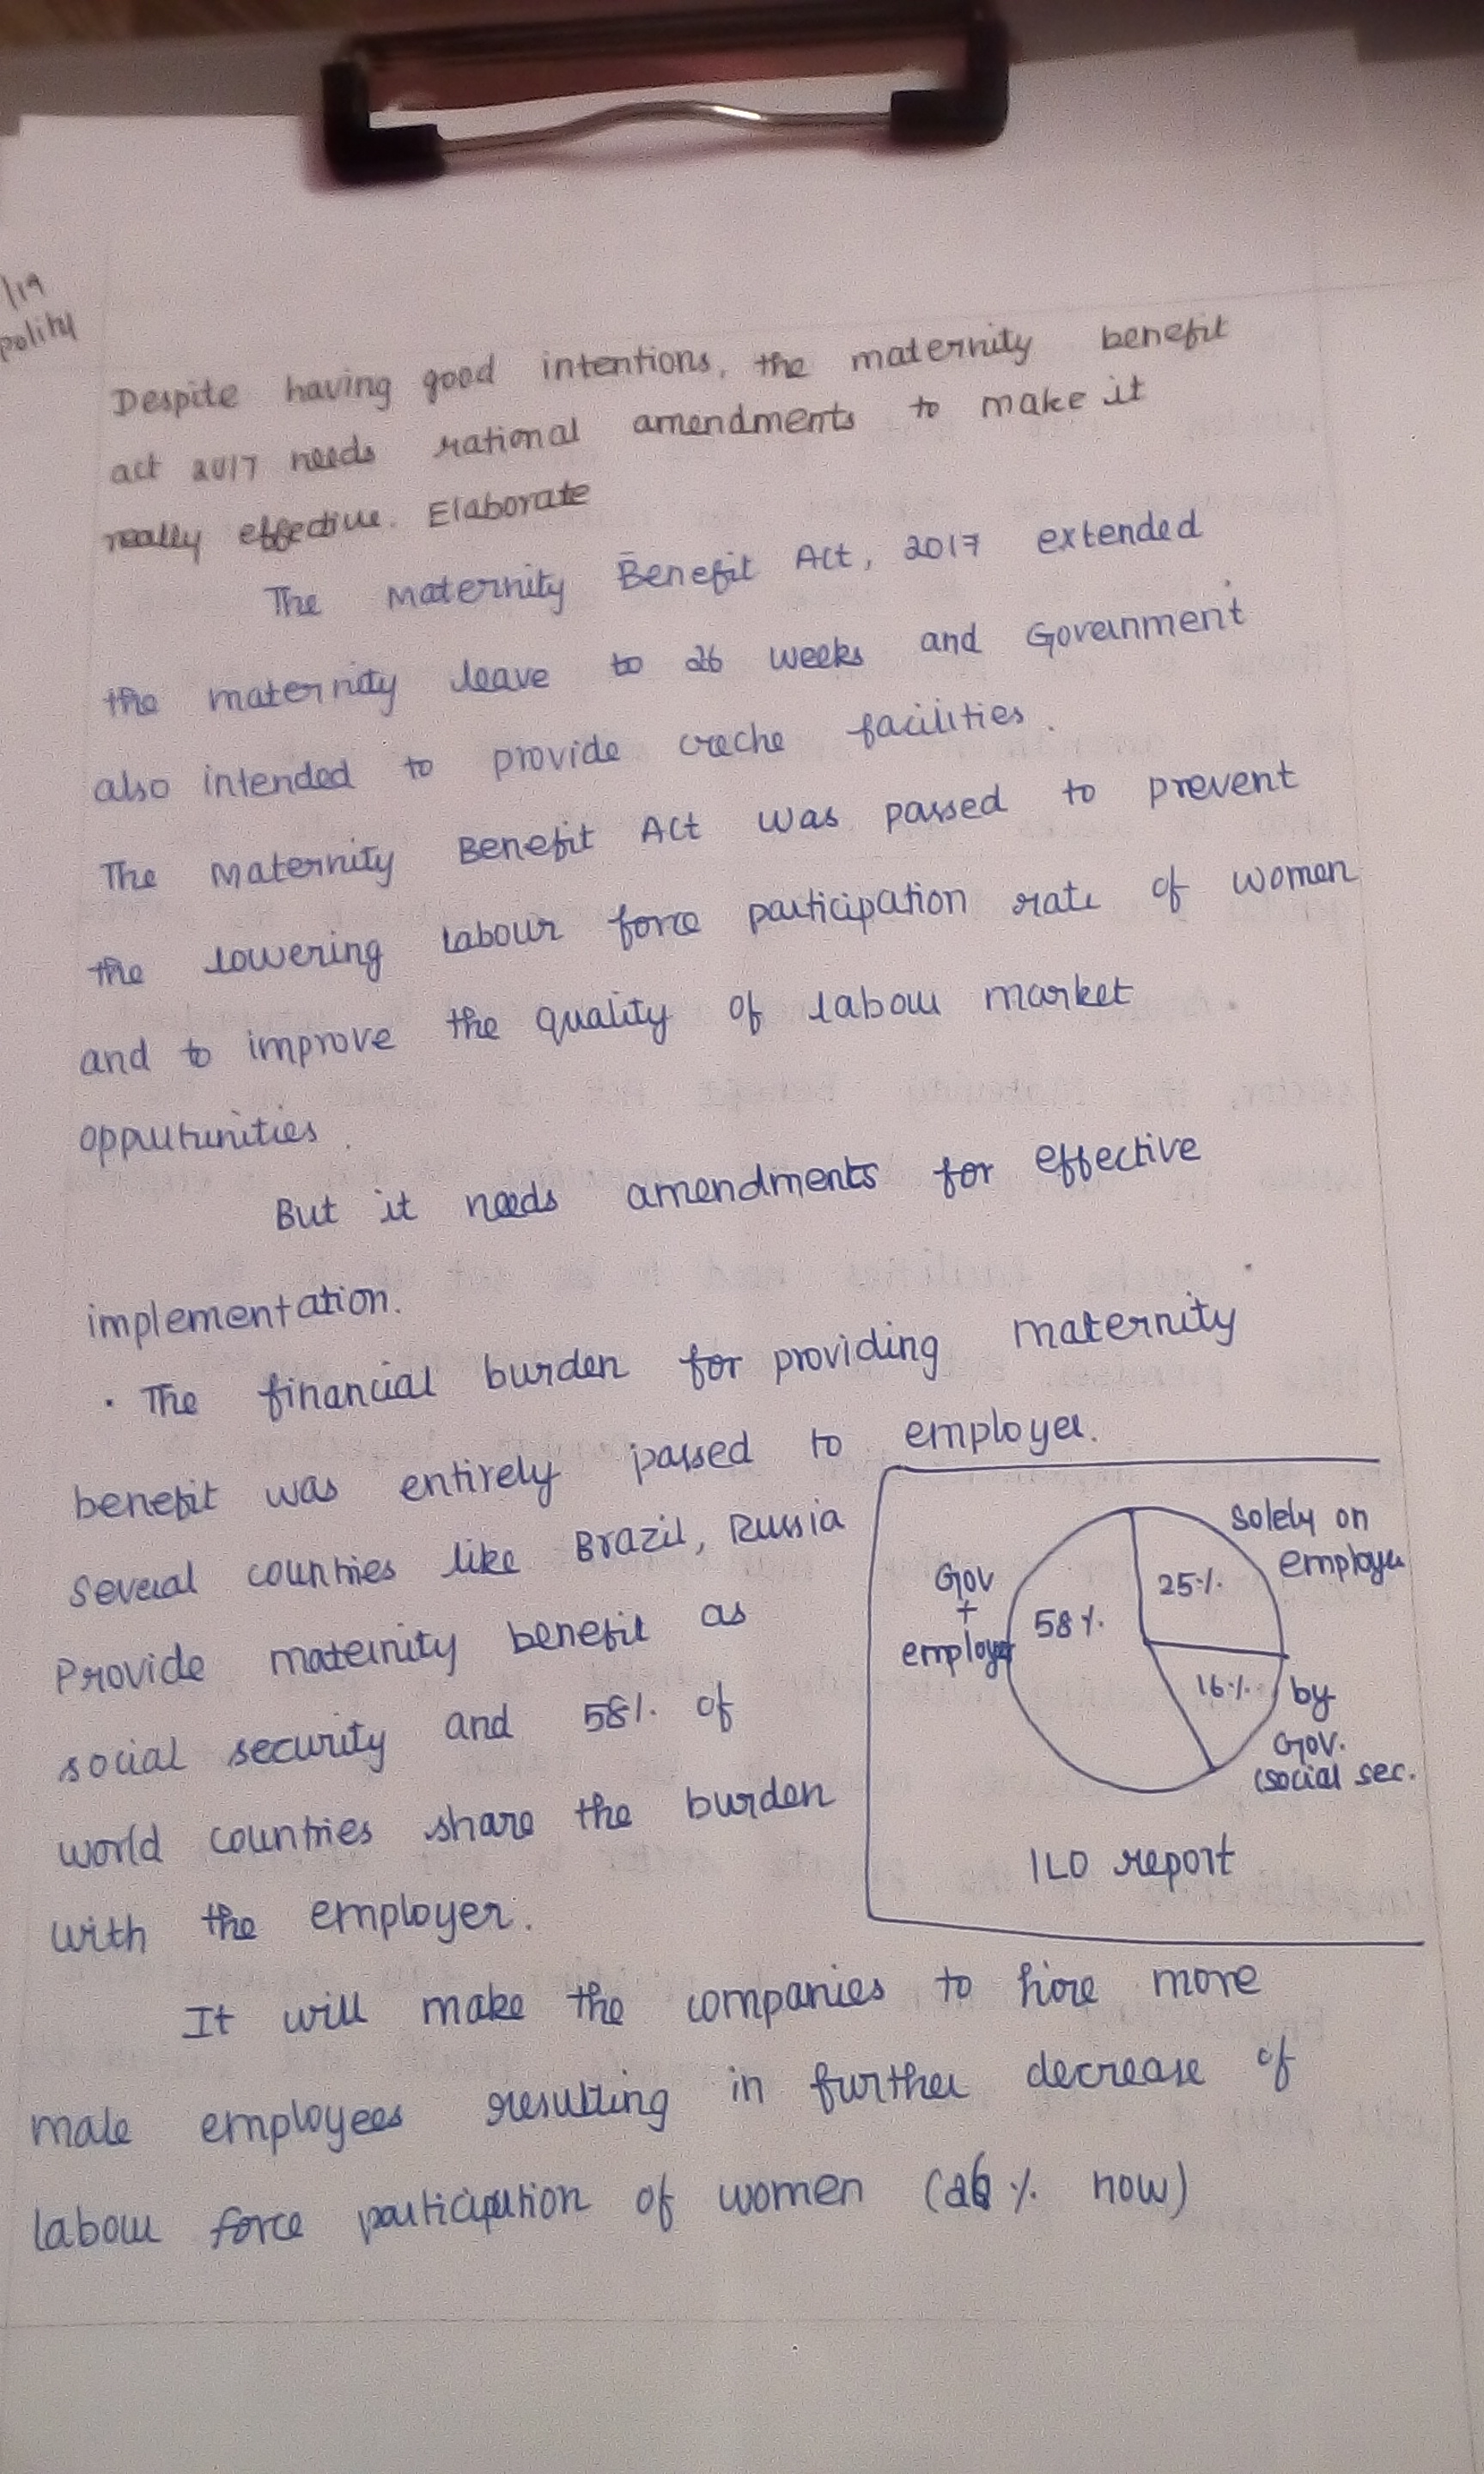 /19
polity
Despite having good intentions, the maternity benefit
act 2017 needs rational amendments to make it
really effective. Elaborate
The Maternity Benefit Act, 2017 extended
the maternity leave to 26 weeks and Government
also intended to provide creche facilities.
The Maternity Benefit Act was passed to prevent
the lowering labour force participation rate of women
and to improve the quality of labour market
oppurtunities.
But it needs amendments for effective
implementation.
· The financial burden for providing maternity
benefit was entirely passed to employer.
Several countries like Brazil, Russia
Provide maternity benefit as
social security and 58% of
world countries share the burden
with the employer.
Solely on
employer
25%
Gov
+
employer
58%
16%
by
Gov.
(social sec.
ILO report
It will make the companies to hire more
male employees resulting in further decrease of
labour force participation of women (26% now)